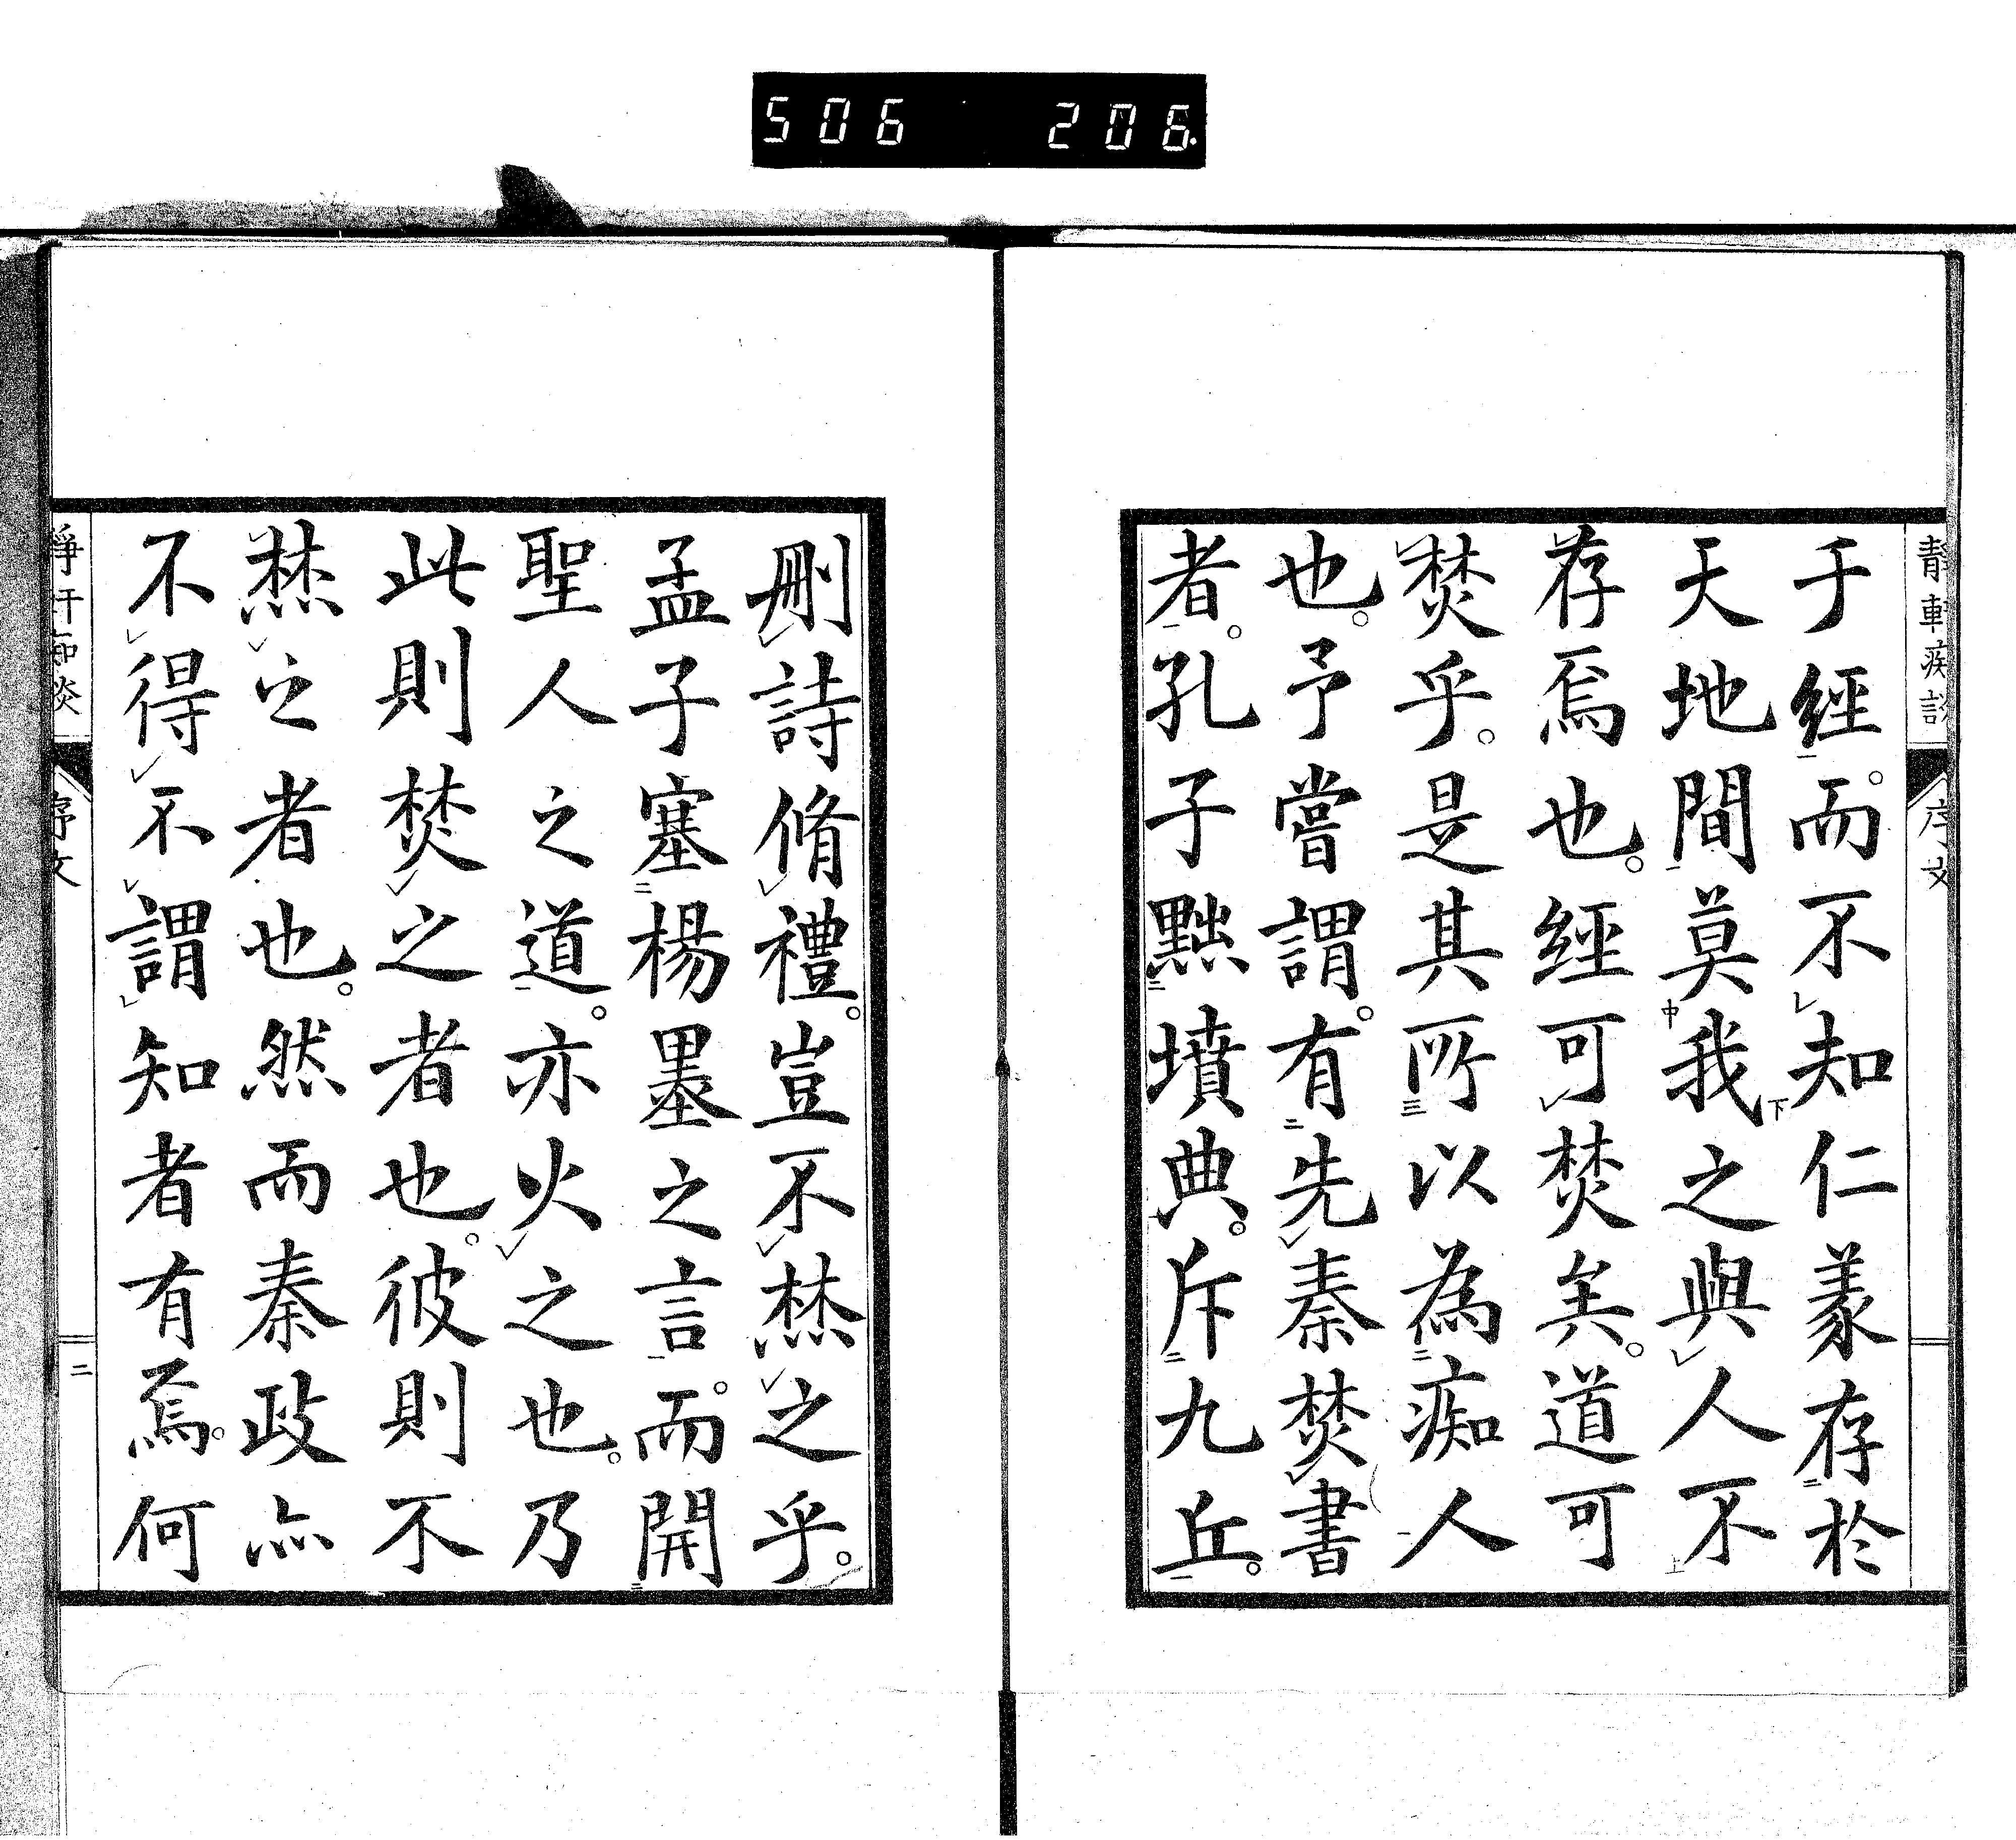 506 206
靜軒痴談
序文
于經。而不知仁義存於
天地間莫我之與人不
存焉也。經可焚矣。道可
焚乎。是其所以為痴人
也。予嘗謂。有先秦焚書
者。孔子黜墳典。斥九丘。
刪詩脩禮。豈不焚之乎。
孟子塞楊墨之言。而開
聖人之道。亦火之也。乃
此則焚之者也。彼則不
焚之者也。然而秦政亦
不得不謂知者有焉。何
靜軒痴談
序文
二